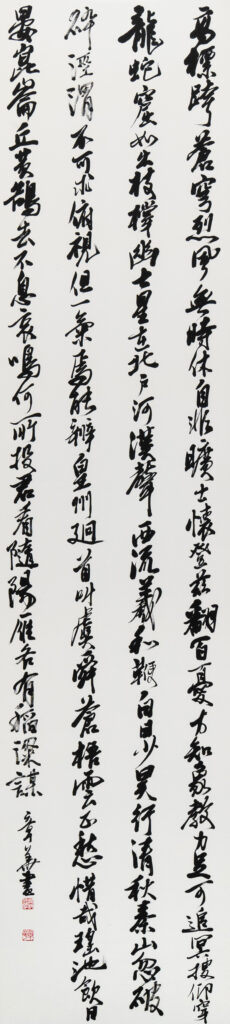 高標跨蒼穹烈風無時休自非曠士懷登茲翻百憂方知象教力足可追冥搜仰穿
龍蛇窟始出枝撐幽七星在北戶河漢聲西流羲和鞭白日少昊行清秋秦山忽破
碎涇渭不可求俯視但一氣焉能辨皇州迴首叫虞舜蒼梧雲正愁惜哉瑤池飲日
晏崑崙丘黃鵠去不息哀鳴何所投君看隨陽雁各有稻粱謀